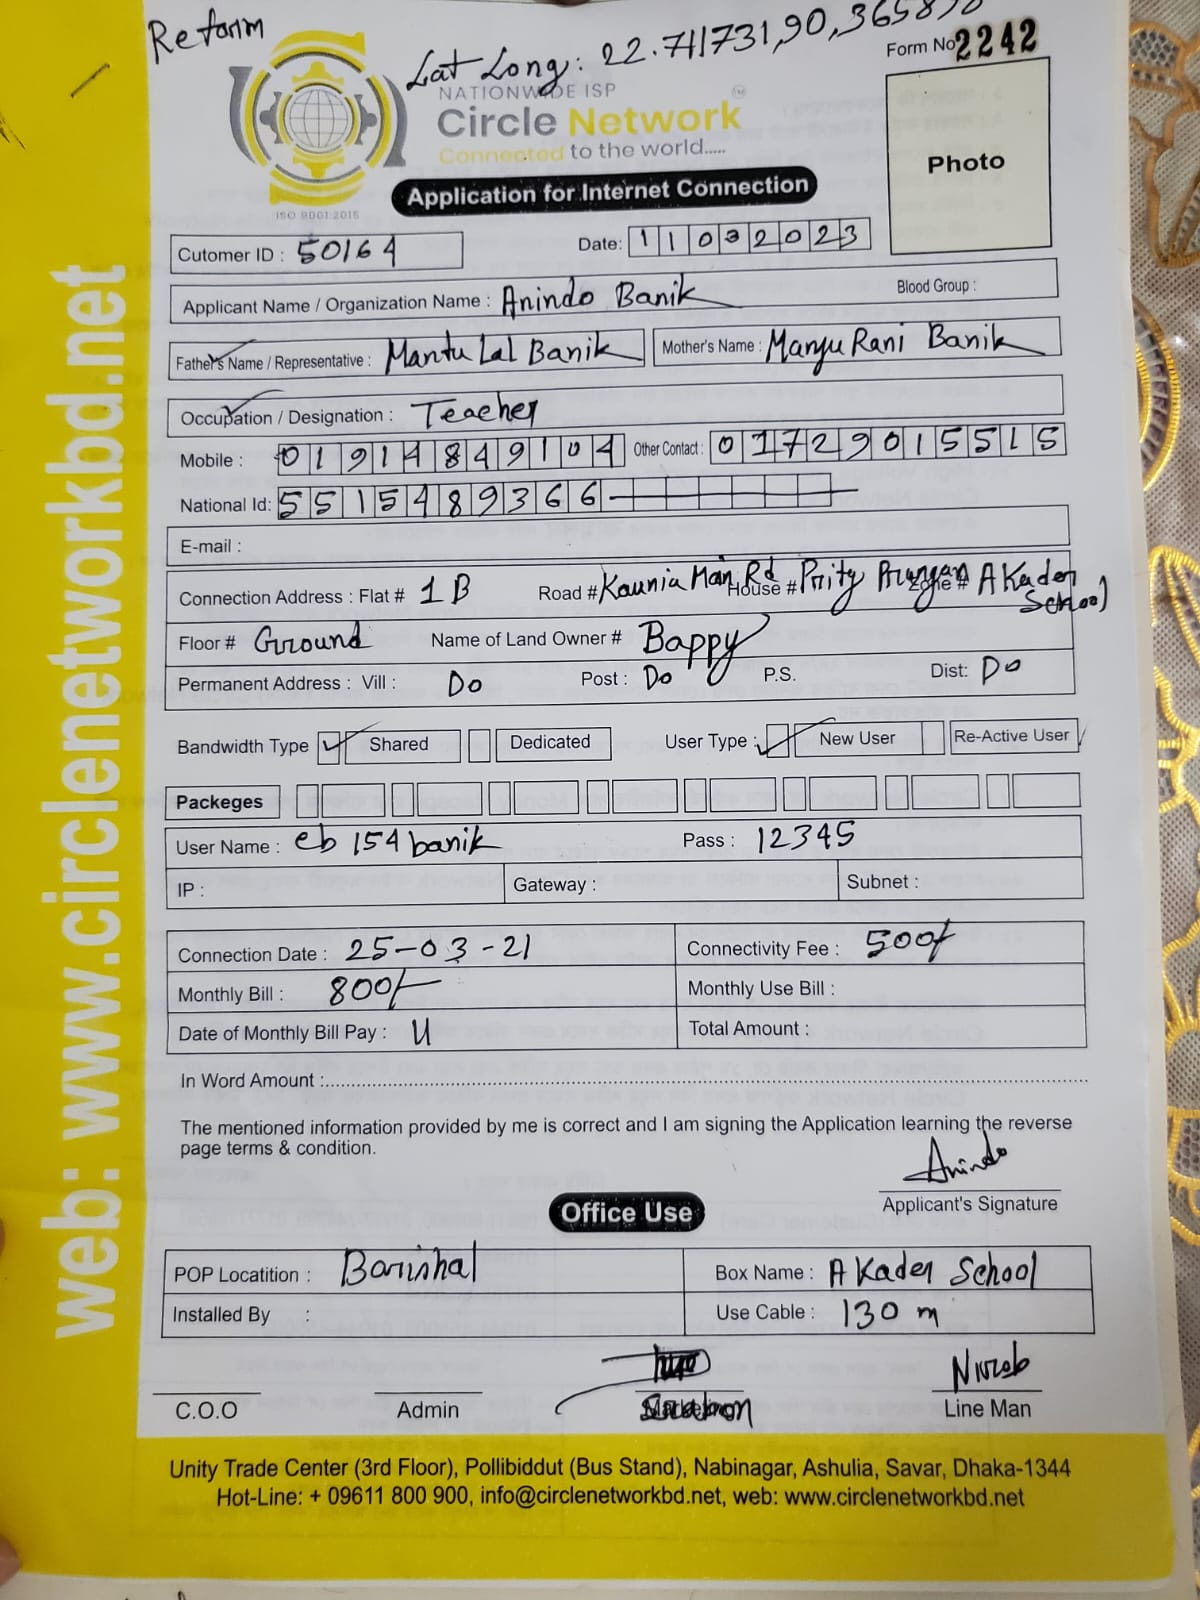 Reform
Lat Long: 22.711731,90,365878
Form No 2242
NATIONWIDE ISP
Circle Network
Connected to the world.....
ISO 9001:2015
Photo
Application for Internet Connection
Cutomer ID : 50164 Date: 11032023
Applicant Name / Organization Name : Anindo Banik Blood Group :
Father's Name / Representative : Mantu Lal Banik Mother's Name : Manju Rani Banik
Occupation / Designation : Teacher
Mobile : 01914849104 Other Contact : 01729015515
National Id: 5515489366
E-mail :
Connection Address : Flat # 1B Road # Kaunia Main Rd House # Prity Prangan Zone # A Kader School
Floor # Ground Name of Land Owner # Bappy
Permanent Address : Vill : Do Post : Do P.S. Dist: Do
Bandwidth Type Shared Dedicated User Type : New User Re-Active User
Packeges
User Name : eb154banik Pass : 12345
IP : Gateway : Subnet :
Connection Date : 25-03-21 Connectivity Fee : 500/
Monthly Bill : 800/- Monthly Use Bill :
Date of Monthly Bill Pay : U Total Amount :
In Word Amount :
The mentioned information provided by me is correct and I am signing the Application learning the reverse
page terms & condition.
Anindo
Applicant's Signature
Office Use
POP Locatition : Barishal Box Name : A Kader School
Installed By : Use Cable : 130 m
C.O.O Admin Line Man
Unity Trade Center (3rd Floor), Pollibiddut (Bus Stand), Nabinagar, Ashulia, Savar, Dhaka-1344
Hot-Line: + 09611 800 900, info@circlenetworkbd.net, web: www.circlenetworkbd.net
web: www.circlenetworkbd.net